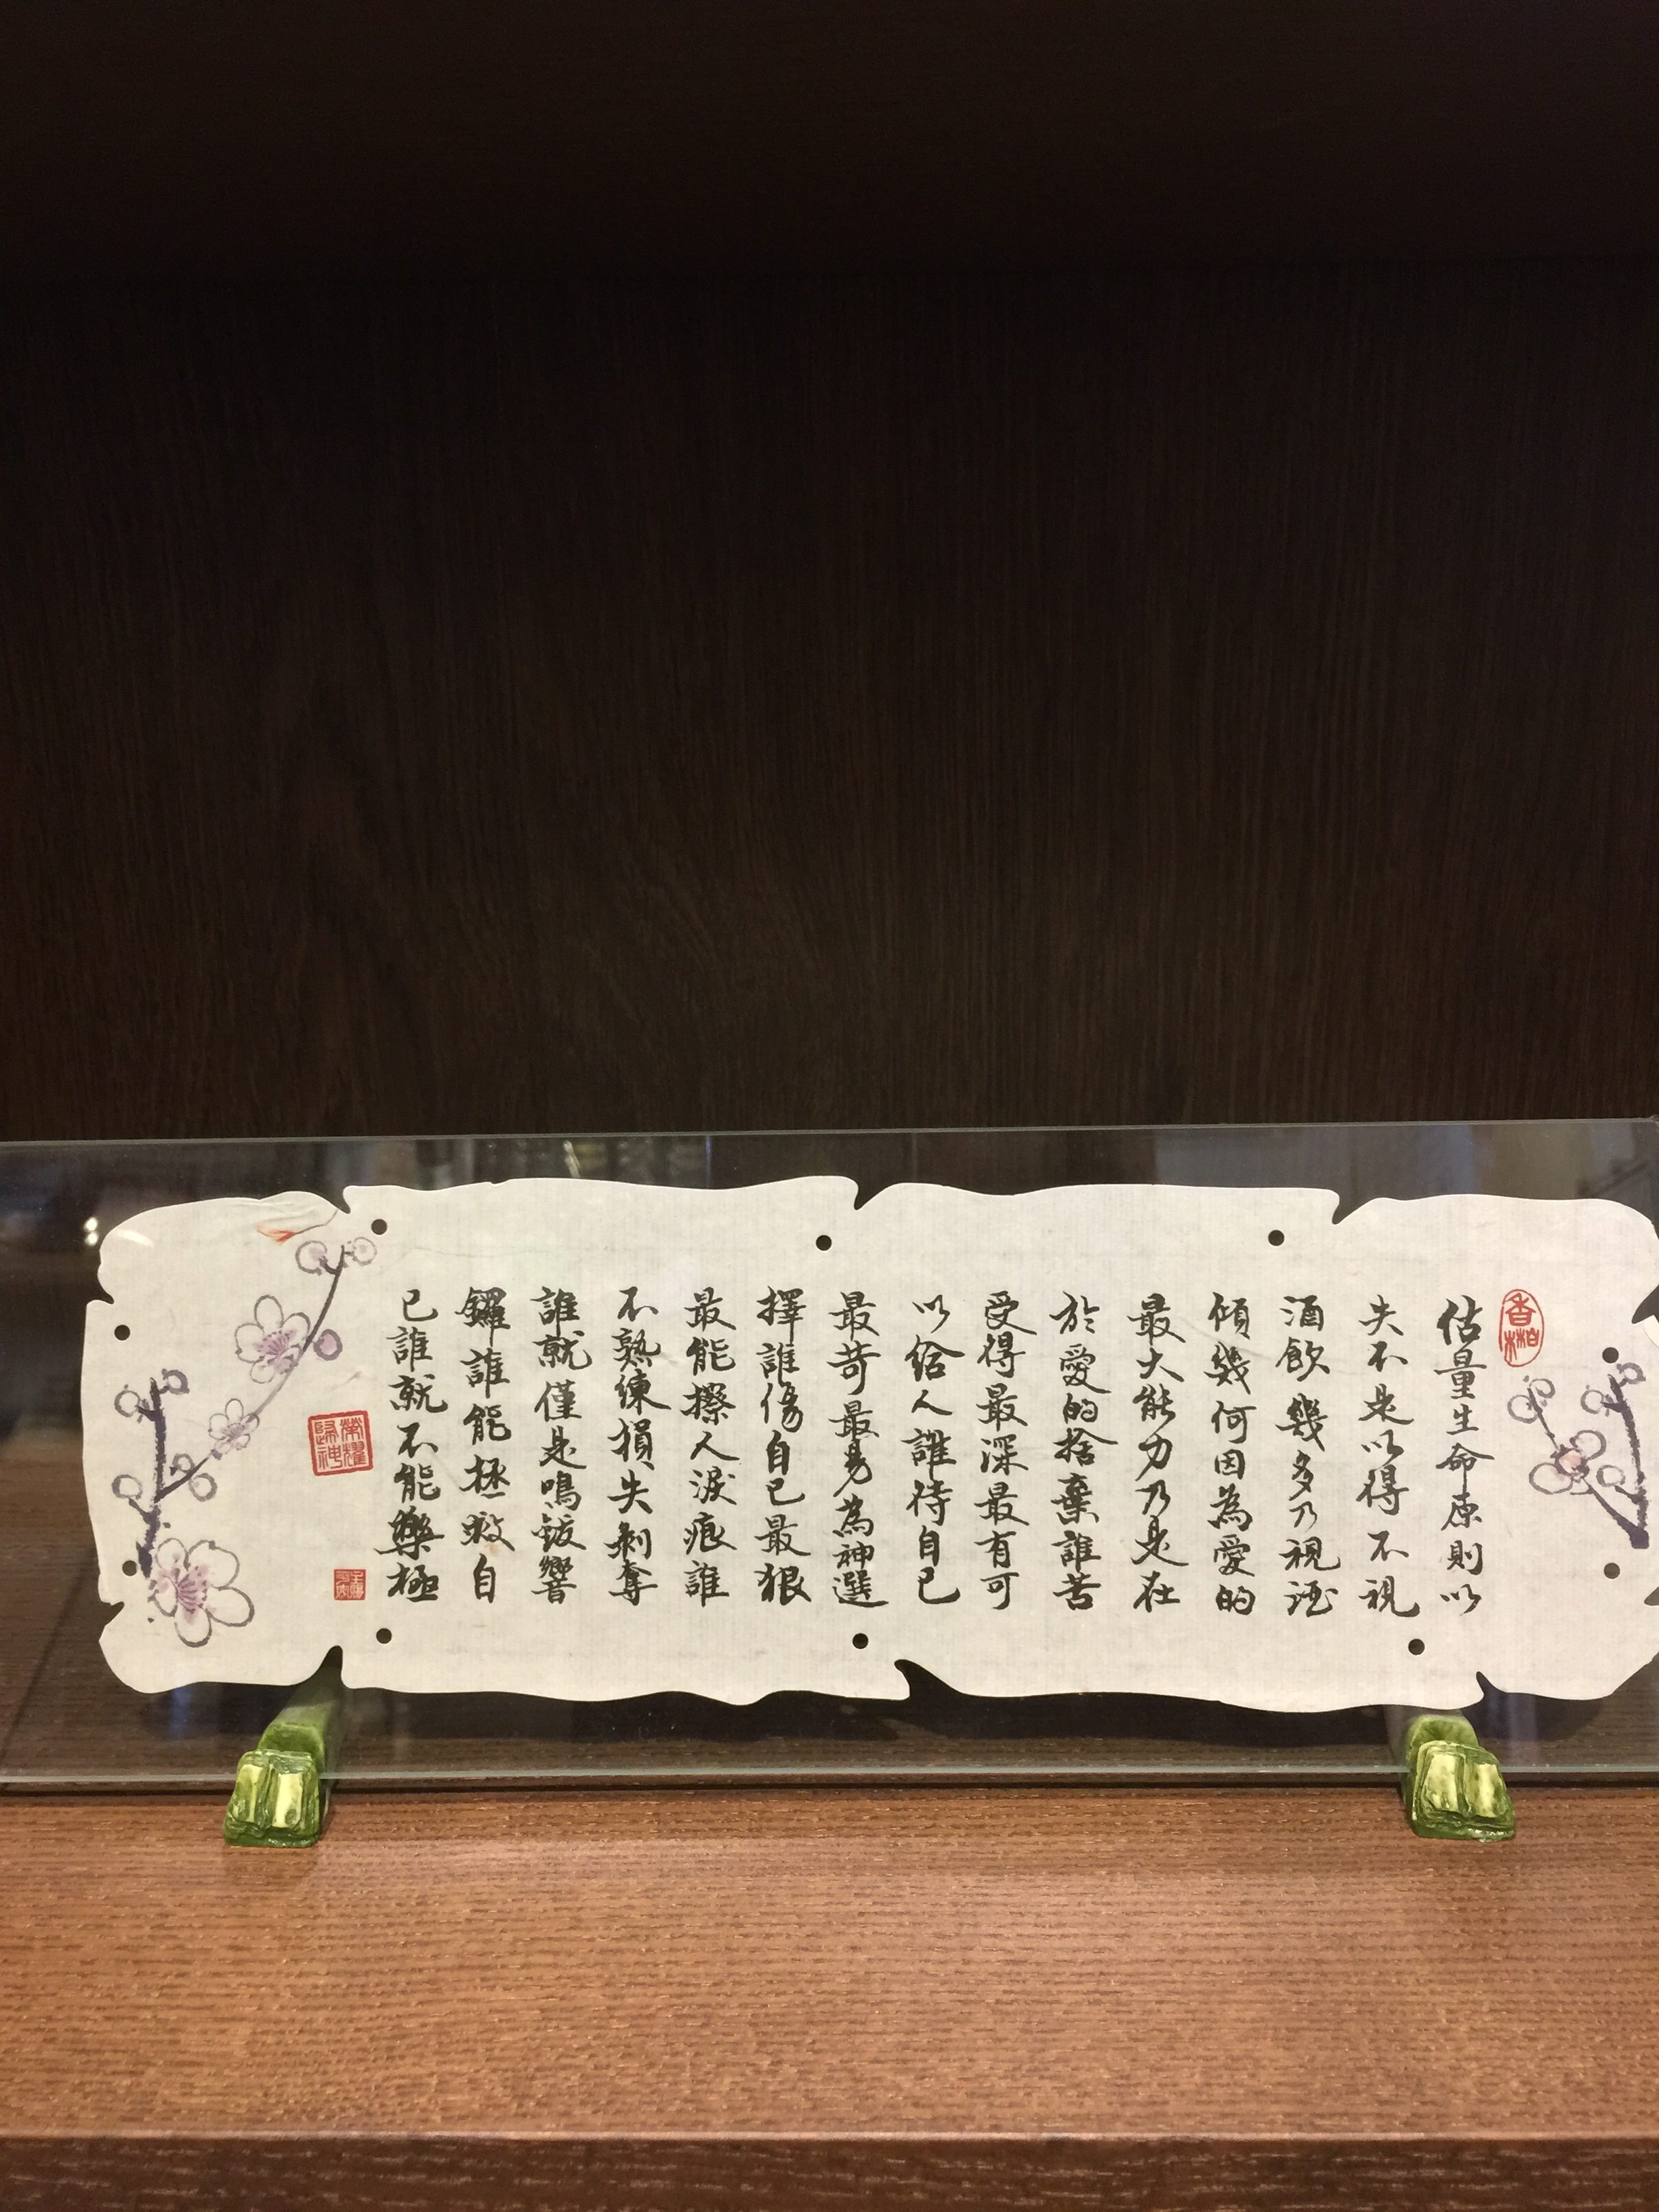 香柏
估量生命原則以
失不是以得不視
酒飲幾多乃視酒
傾幾何因為愛的
最大能力乃是在
於愛的捨棄誰苦
受得最深最有可
以給人誰待自己
最苛最易為神選
擇誰傷自己最狠
最能擦人淚痕誰
不熟練損失剝奪
誰就僅是鳴鈸響
鑼誰能拯救自
己誰就不能樂極
榮耀
歸神